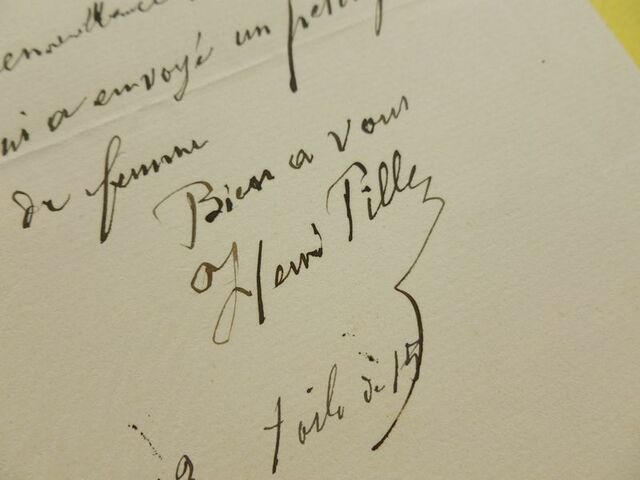 envoyé un
ui a envoyé un
de femme
Bien a vous
Henri Pille
toile de 15